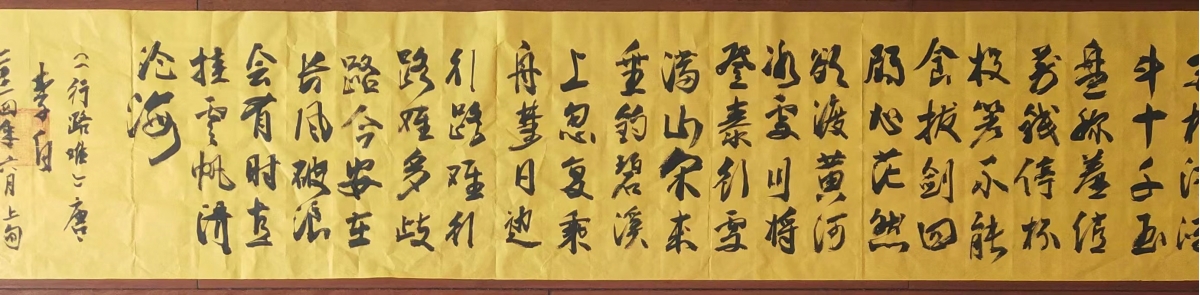 斗十千玉
盘珎羞值
万钱停杯
投箸不能
食拔剑四
顾心茫然
欲渡黄河
冰塞川将
登泰行雪
满山闲来
垂钓碧溪
上忽复乘
舟梦日边
行路难行
路难多歧
路今安在
长风破浪
会有时直
挂云帆济
沧海
(行路难)唐
李白
二〇一四年六月上旬